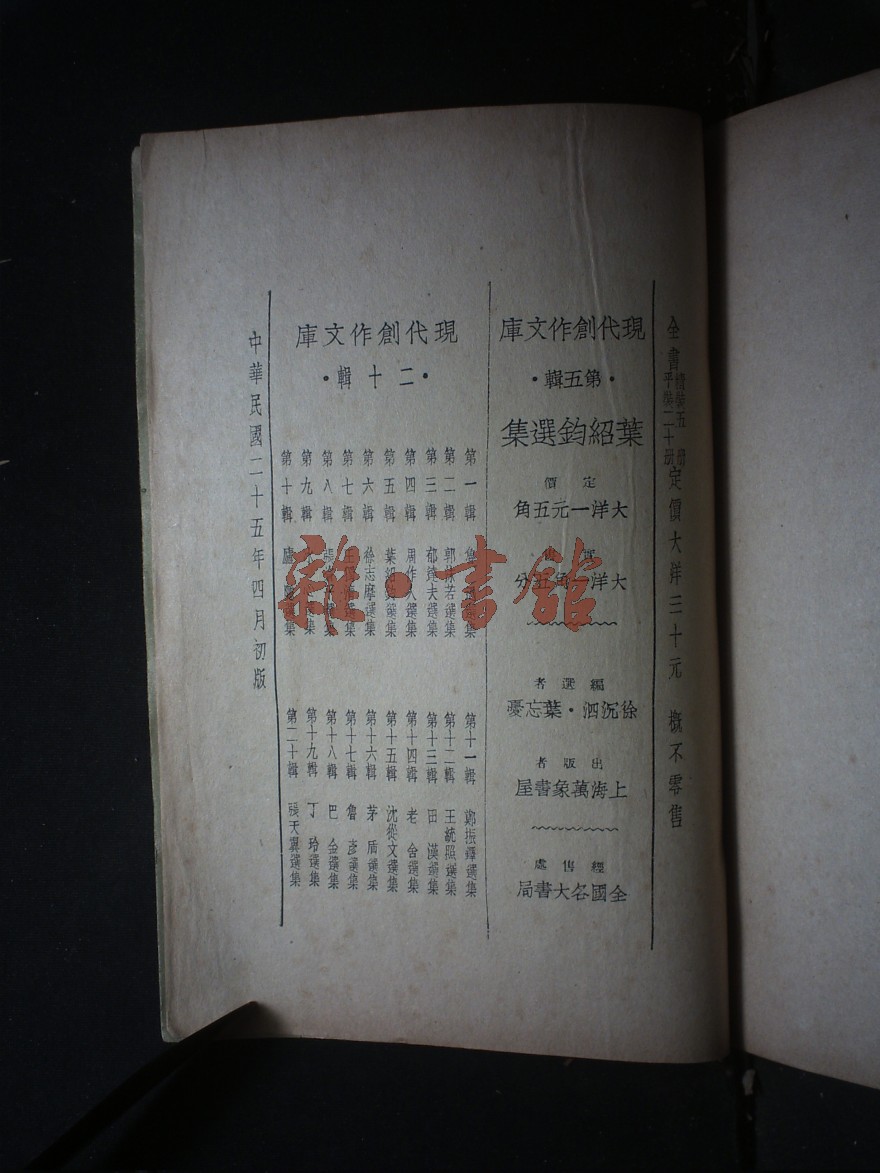 全書精裝五冊平裝二十冊定價大洋三十元 概不零售
現代創作文庫
·第五輯·
葉紹鈞選集
定價
大洋一元五角
大洋一角五分
編選者
徐沉泗·葉忘憂
出版者
上海萬象書屋
經售處
全國各大書局
現代創作文庫
·二十輯·
第一輯 魯迅選集
第二輯 郭沫若選集
第三輯 郁達夫選集
第四輯 周作人選集
第五輯 葉紹鈞選集
第六輯 徐志摩選集
第七輯 王選集
第八輯 張選集
第九輯 選集
第十輯 廬隱選集
第十一輯 鄭振鐸選集
第十二輯 王統照選集
第十三輯 田漢選集
第十四輯 老舍選集
第十五輯 沈從文選集
第十六輯 茅盾選集
第十七輯 魯彥選集
第十八輯 巴金選集
第十九輯 丁玲選集
第二十輯 張天翼選集
中華民國二十五年四月初版
雜·書館